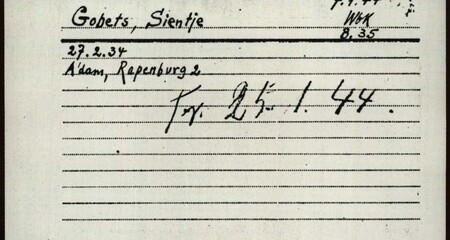 Gobets, Sientje
W&K
8.35
27.2.34
A'dam, Rapenburg 2
Trp. 25.1.44.